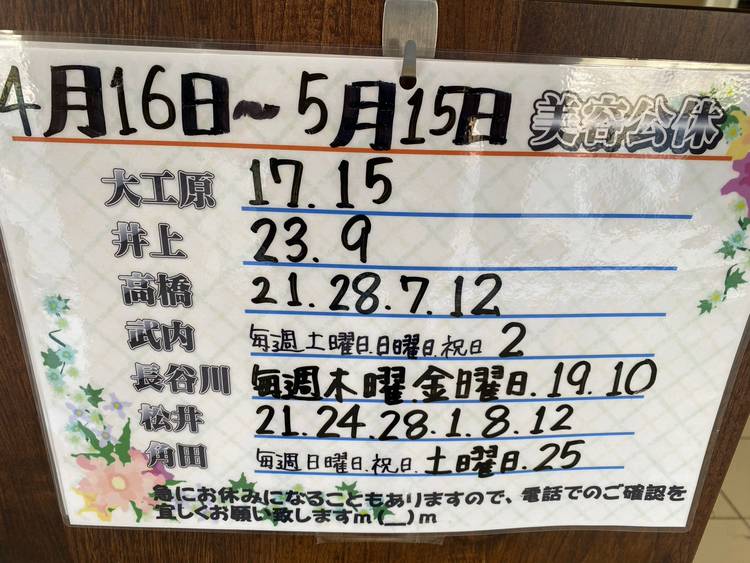 4月16日～5月15日 美容公休
大工原 17.15
井上 23.9
高橋 21.28.7.12
武内 毎週土曜日.日曜日.祝日 2
長谷川 毎週木曜.金曜日.19.10
松井 21.24.28.1.8.12
角田 毎週日曜日.祝日.土曜日.25
急にお休みになることもありますので、電話でのご確認を
宜しくお願い致しますm(__)m